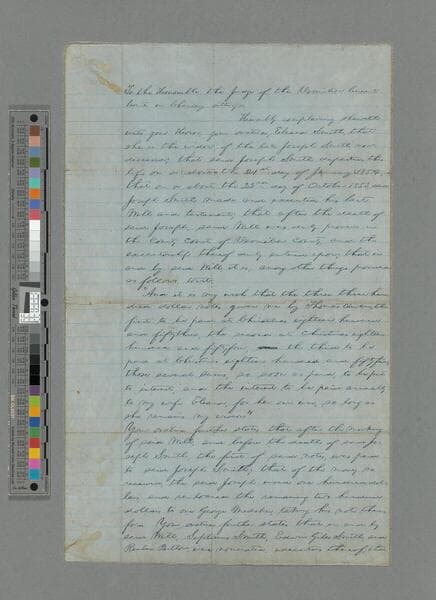 To the Honorable the Judge of the Vermilion
in Chancery sitting.
Humbly complaining sheweth
unto your Honor, your oratrix, Eleanor Smith, that
she is the widow of the late Joseph Smith now
deceased, that said Joseph Smith departed this
life on or about the 21st day of January 1854,
that on or about the 25th day of October 1853, said
Joseph Smith made and executed his last
Will and testament, that after the death of
said Joseph, said Will was duly proven in
the County Court of Vermilion County and the
thereof duly entered upon, that in
and by said Will it is, among other things provided
as follows, to wit:
"And it is my wish that the three three hun
dred dollar notes given me by Thomas
first to be paid at Christmas eighteen hundred
and fifty three, the second at Christmas eighteen
hundred and fifty four the third to be
paid at Christmas eighteen hundred and fifty five
these several sums, so soon as paid to be put
to interest and the interest to be paid annually
to my wife Eleanor for her own use, so long as
she remains my widow"
Your oratrix further states, that after the making
of said Will, and before the death of said Jo-
seph Smith, the first of said notes, was paid
to said Joseph Smith, that of the money so
received, the said Joseph used one hundred dol
lars and re-loaned the remaining two hundred
dollars to one George taking his note there
for. Your oratrix further states that in and by
said Will, Smith, Edwin Giles Smith and
were nominated executors thereof, that